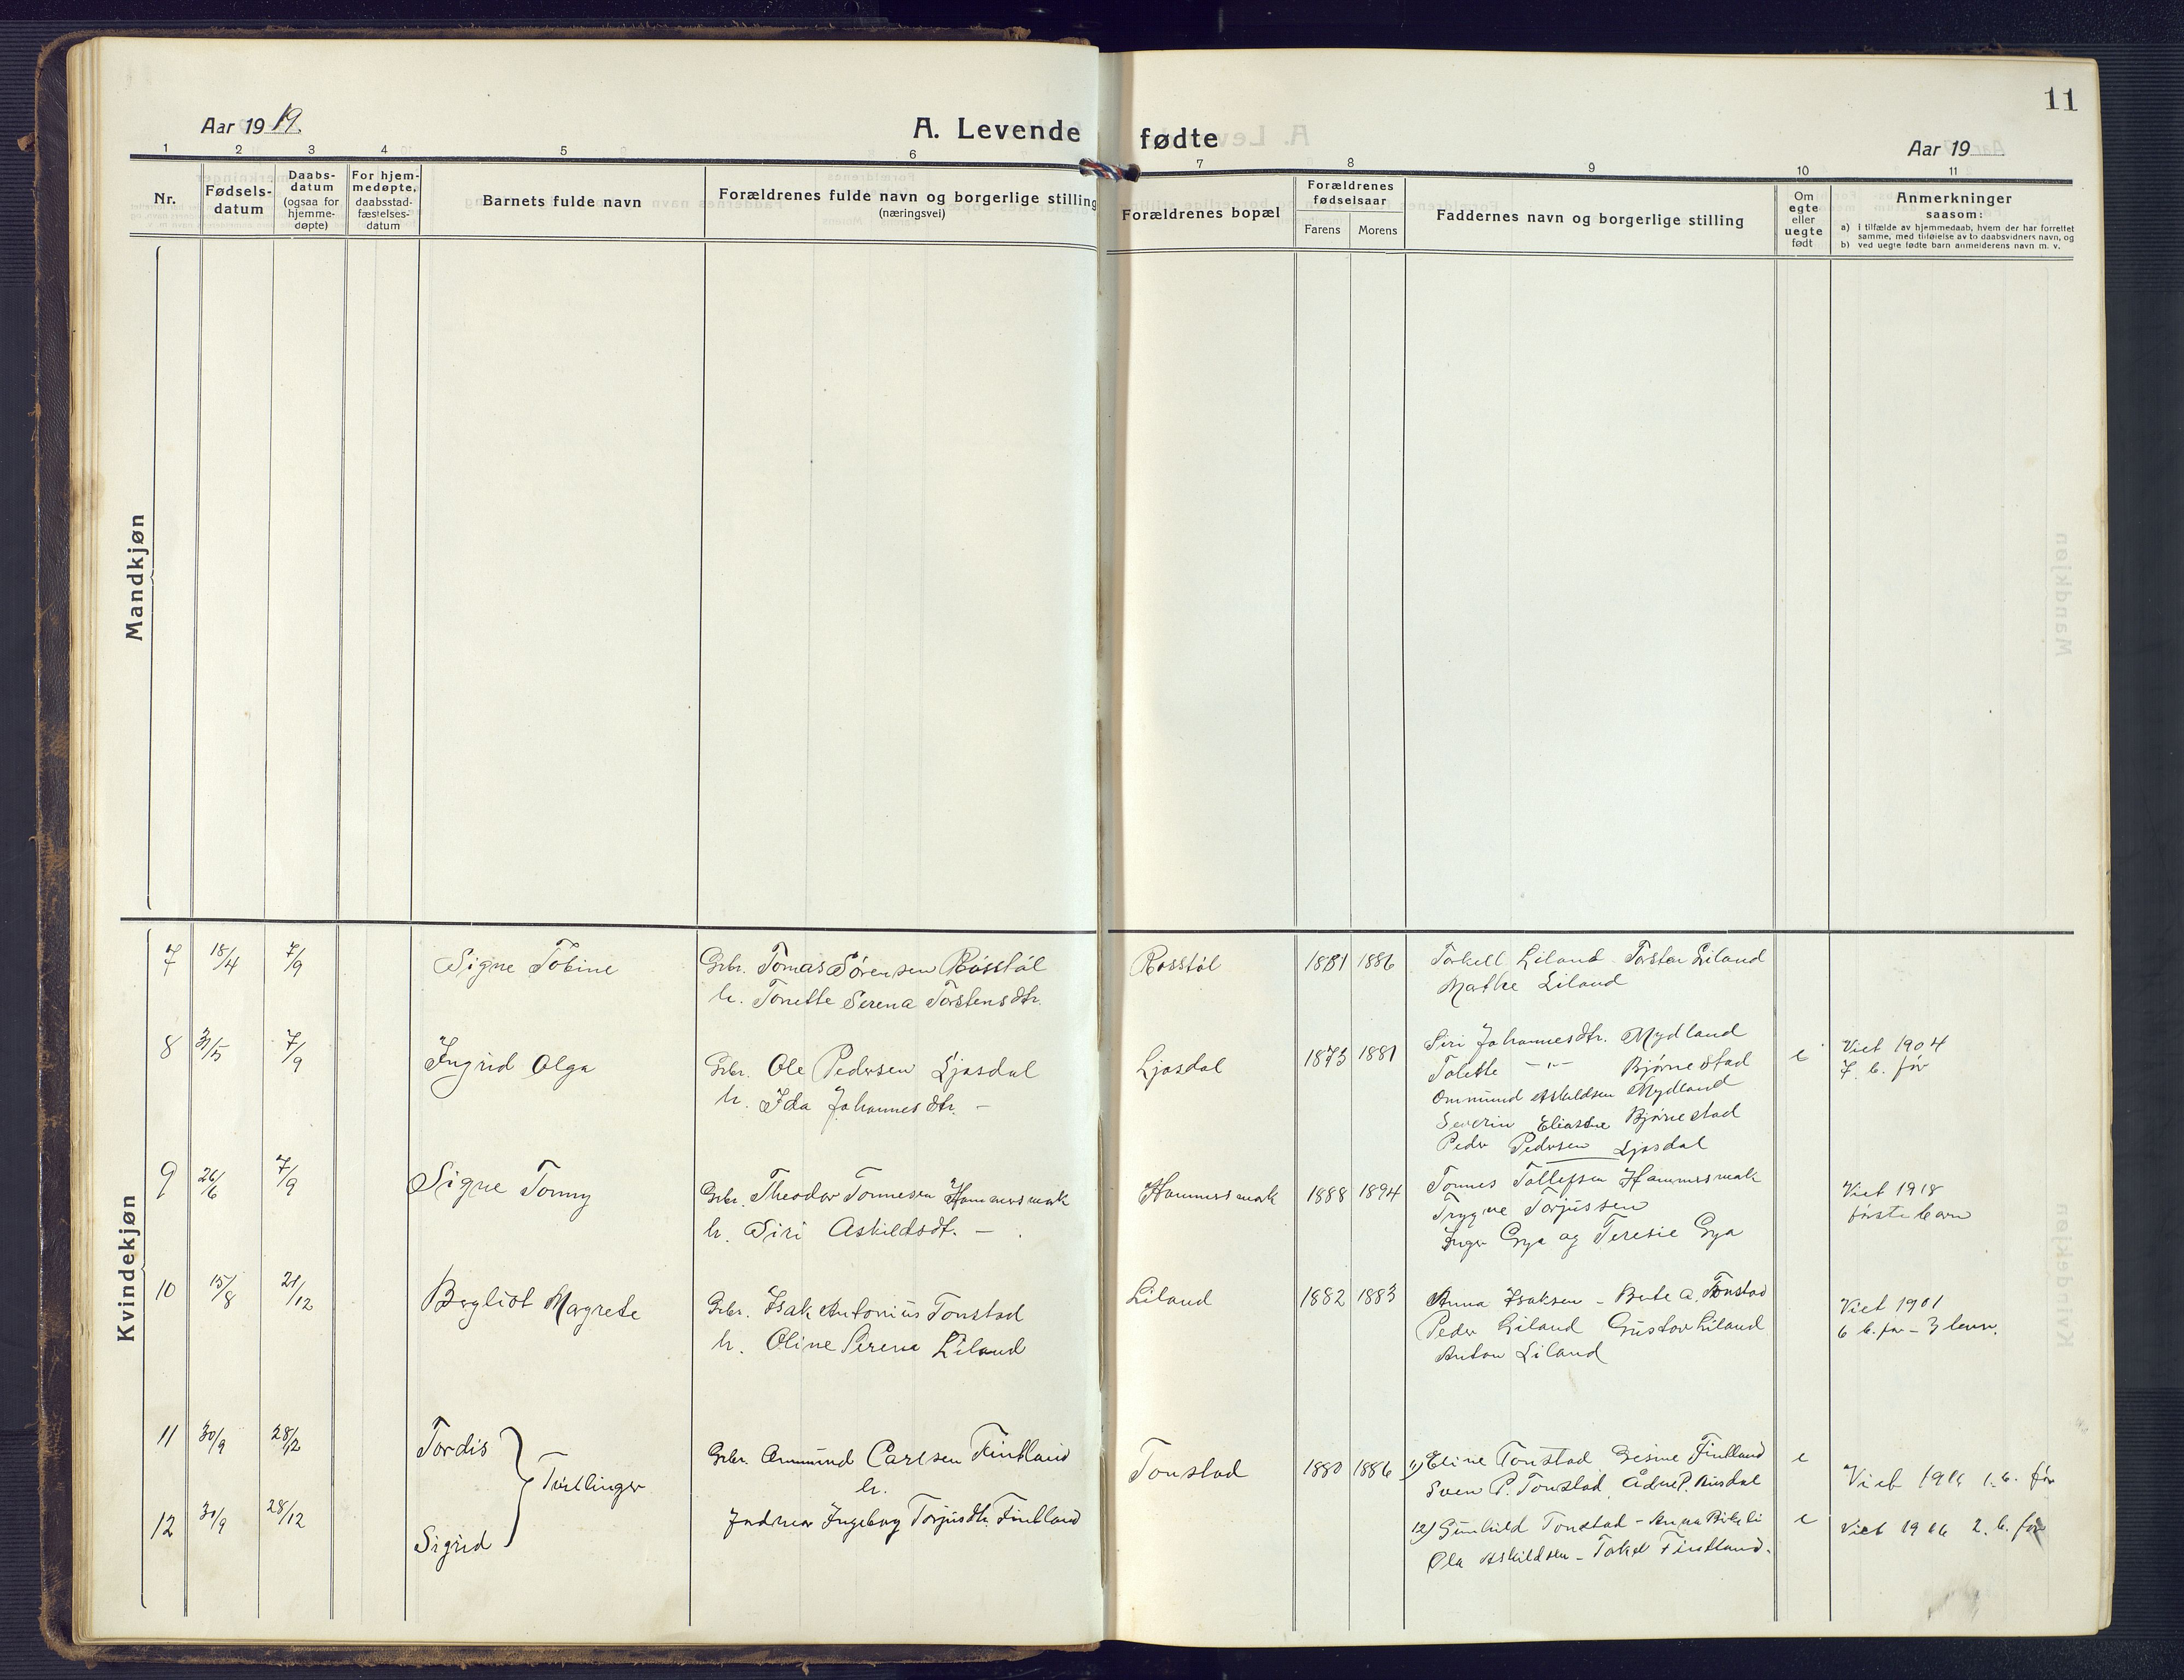 11
Aar 1919.
A. Levende fødte
Aar 19
1 2 3 4 5 6 7 8 9 10 11
Nr.
Fødsels-
datum
Daabs-
datum
(ogsaa for
hjemme-
døpte)
For hjem-
medøpte,
daabsstad-
fæstelses-
datum
Barnets fulde navn
Forældrenes fulde navn og borgerlige stilling
(næringsvei)
Forældrenes bopæl
Forældrenes
fødselsaar
Farens Morens
Faddernes navn og borgerlige stilling
Om
egte
eller
uegte
født
Anmerkninger
saasom:
a) i tilfælde av hjemmedaab, hvem der har forrettet
samme, med tilføielse av to daabsvidners navn, og
b) ved uegte fødte barn anmelderens navn m. v.
Mandkjøn
Kvindekjøn
7 18/4 7/9 Signe Tobine Gbr. Tomas Sörensen Rösstöl Rosstöl 1881 1886 Torkell Liland Torsten Liland
h. Tonette Serena Torstensdtr. Mathe Liland
8 31/5 7/9 Ingrid Olga Gbr. Ole Pedersen Ljosdal Ljosdal 1873 1881 Siri Johannesdtr. Mydland e Viet 1904
h. Ida Johannesdtr. — Tolette —"— Bjørnestad 7 b. før
Ommund Askildsen Mydland
Severin Bjørnestad
Peder Pedersen Ljosdal
9 26/6 7/9 Signe Tonny Gbr. Theodor Tonnesen Hammersmark Hammersmark 1888 1894 Tonnes Tollefsen Hammersmark Viet 1918
h. Siri Askildsdt. — Trygve Torjussen første barn
Inger Gya og Teresie Gya
10 15/8 21/12 Bergliot Magrete Gbr. Isak Antonius Tonstad Liland 1882 1883 Anna Isaksen - Berte A. Tonstad Viet 1901
h. Oline Serena Liland Peder Liland Gustav Liland 6 b. før - 3 leve.
Anton Liland
11 30/9 28/12 Tordis Tvillinger Gbr. Ommund Carlsen Fintland Tonstad 1880 1886 11) Eline Tonstad Gesine Fintland e
h. Sven P. Tonstad, Ådne P. Ausdal Viet 1916 1. b. før
12 30/9 28/12 Sigrid Ingeborg Torjusdtr. Fintland 12) Gunhild Tonstad - Anna Birkeli e Viet 1916 2. b. før
Ola Askildsen - Tarkel Fintland.